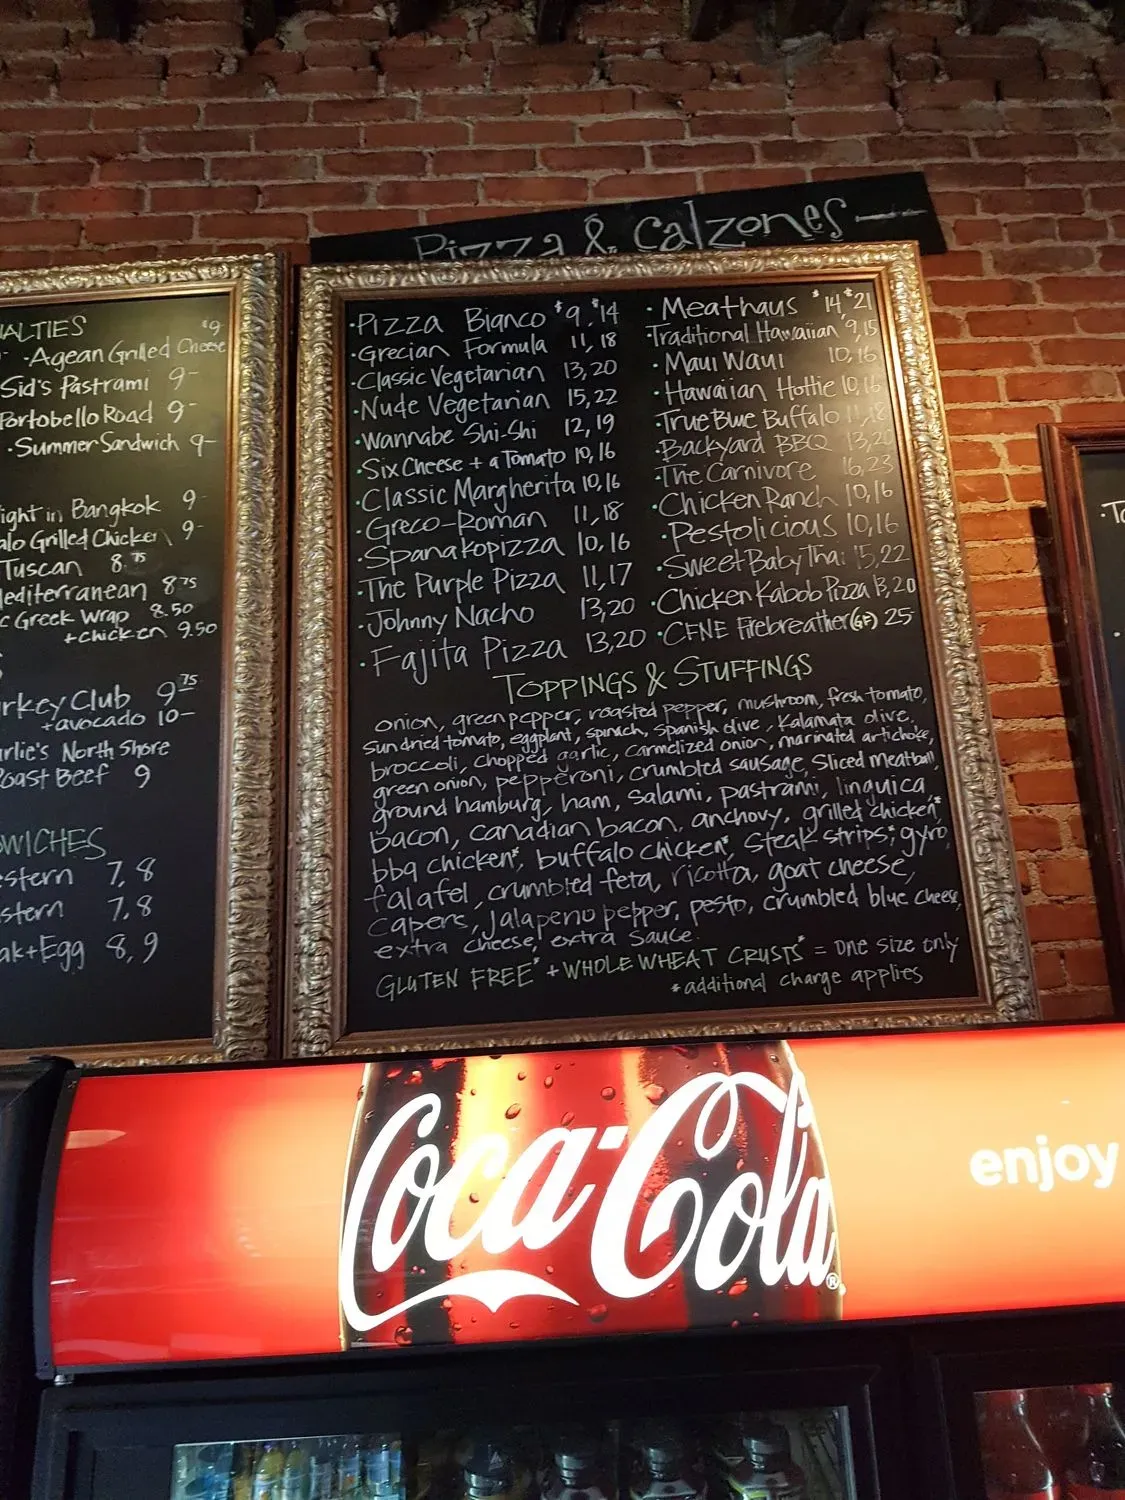 Pizza & Calzones
ALTIES
$9
· Agean Grilled Cheese
Sid's Pastrami 9-
Portobello Road 9-
· Summer Sandwich 9-
ight in Bangkok 9-
alo Grilled Chicken 9-
Tuscan 8.75
editerranean 8.75
c Greek Wrap 8.50
+chicken 9.50
rkey Club 9.75
+avocado 10-
arlie's North Shore
Roast Beef 9
DWICHES
estern 7, 8
stern 7, 8
ak+Egg 8, 9
· Pizza Bianco $9, $14
· Grecian Formula 11, 18
· Classic Vegetarian 13, 20
· Nude Vegetarian 15, 22
· Wannabe Shi-Shi 12, 19
· Six Cheese + a Tomato 10, 16
· Classic Margherita 10, 16
· Greco-Roman 11, 18
· Spanakopizza 10, 16
· The Purple Pizza 11, 17
· Johnny Nacho 13, 20
· Fajita Pizza 13, 20
· Meathaus $14, $21
Traditional Hawaiian 9, 15
· Maui Waui 10, 16
· Hawaiian Hottie 10, 16
· True Blue Buffalo 11, 18
· Backyard BBQ 13, 20
· The Carnivore 16, 23
· Chicken Ranch 10, 16
· Pestolicious 10, 16
· Sweet Baby Thai 15, 22
· Chicken Kabob Pizza 13, 20
· CFNE Firebreather (GF) 25-
TOPPINGS & STUFFINGS
onion, green pepper, roasted pepper, mushroom, fresh tomato,
sundried tomato, eggplant, spinach, spanish olive, Kalamata olive,
broccoli, chopped garlic, carmelized onion, marinated artichoke,
green onion, pepperoni, crumbled sausage, sliced meatball,
ground hamburg, ham, salami, pastrami, linguica,
bacon, canadian bacon, anchovy, grilled chicken*,
bbq chicken*, buffalo chicken*, steak strips*, gyro,
falafel, crumbled feta, ricotta, goat cheese,
capers, jalapeno pepper, pesto, crumbled blue cheese,
extra cheese, extra sauce.
GLUTEN FREE* + WHOLE WHEAT CRUSTS* = one size only
*additional charge applies
Coca-Cola®
enjoy